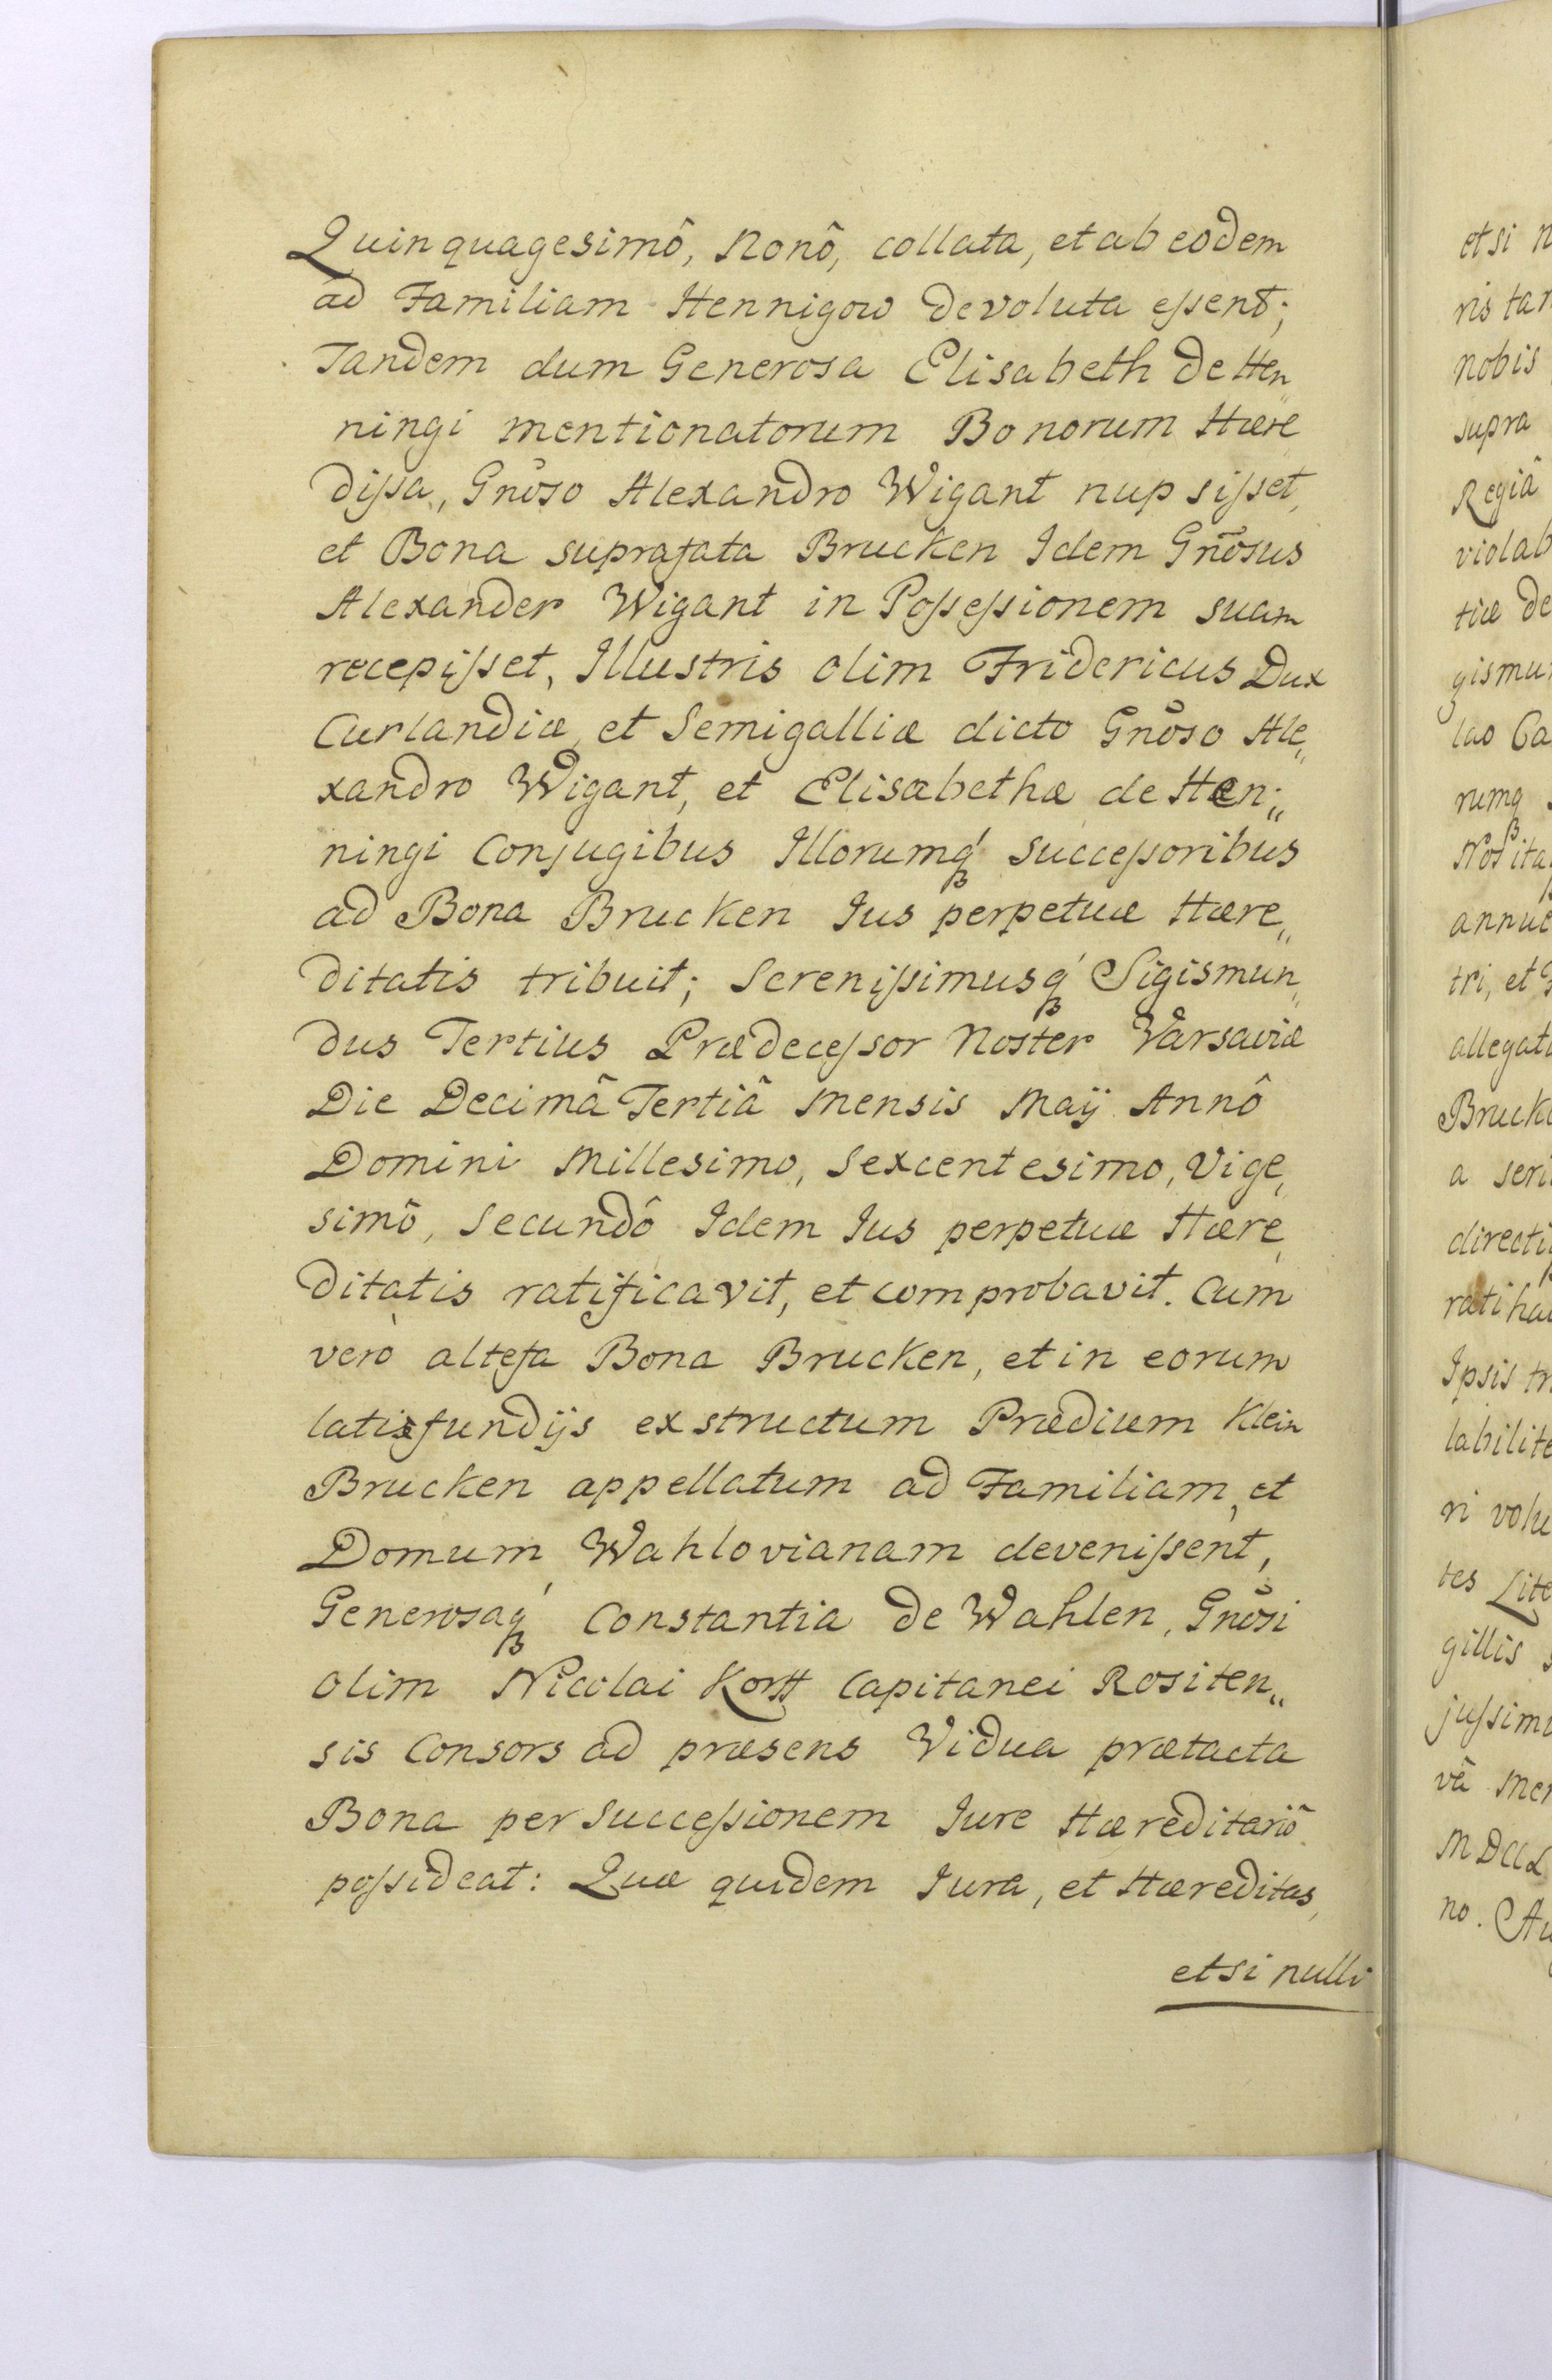 Quinquagesimô, Nonô, collata, et ab eodem
ad Familiam Hennigow devoluta essent;
Tandem dum Generosa Elisabeth de Hen„
ningi mentionatorum Bonorum Hære„
dissa, Gnõso Alexandro Wigant nupsisset,
et Bona suprafata Brucken Idem Gnõsus
Alexander Wigant in Possessionem suam
recepisset, Illustris olim Fridericus Dux
Curlandiæ, et Semigalliæ dicto Gnõso Ale„
xandro Wigant, et Elisabethæ de Hen„
ningi Conjugibus Illorumq́ʒ Successoribus
ad Bona Brucken Jus perpetuæ Hære„
ditatis tribuit; Serenissimusq́ʒ Sigismun„
dus Tertius Prædecessor Noster Varsaviæ
Die Decimâ Tertiâ Mensis Maÿ Annô
Domini Millesimo, Sexcentesimo, Vige„
simô, Secundô Idem Jus perpetuæ Hære„
ditatis ratificavit, et comprobavit. Cum
verò altefa Bona Brucken, et in eorum
latisfundijs exstructum Prædium Klein
Brucken appellatum ad Familiam, et
Domum Wahlovianam devenissent,
Generosaq́ʒ Constantia de Wahlen, Gnõsi
olim Nicolai Korff Capitanei Rositen„
sis Consors ad præsens Vidua prætacta
Bona per Successionem Jure Hæreditariô
possideat: Quæ quidem Jura, et Hæreditas,
etsi nulli
etsi n
ris tan
nobis
supra
Regiâ
violab
tiæ de
gismun
lao Ca
rumqʒ
ita
annue
tri, et
allegat
Bruck
a seri
directi
ratiha
Ipsis tr
labilite
ri volu
tes Lite
gillis s
jussim
vâ Men
no. Au